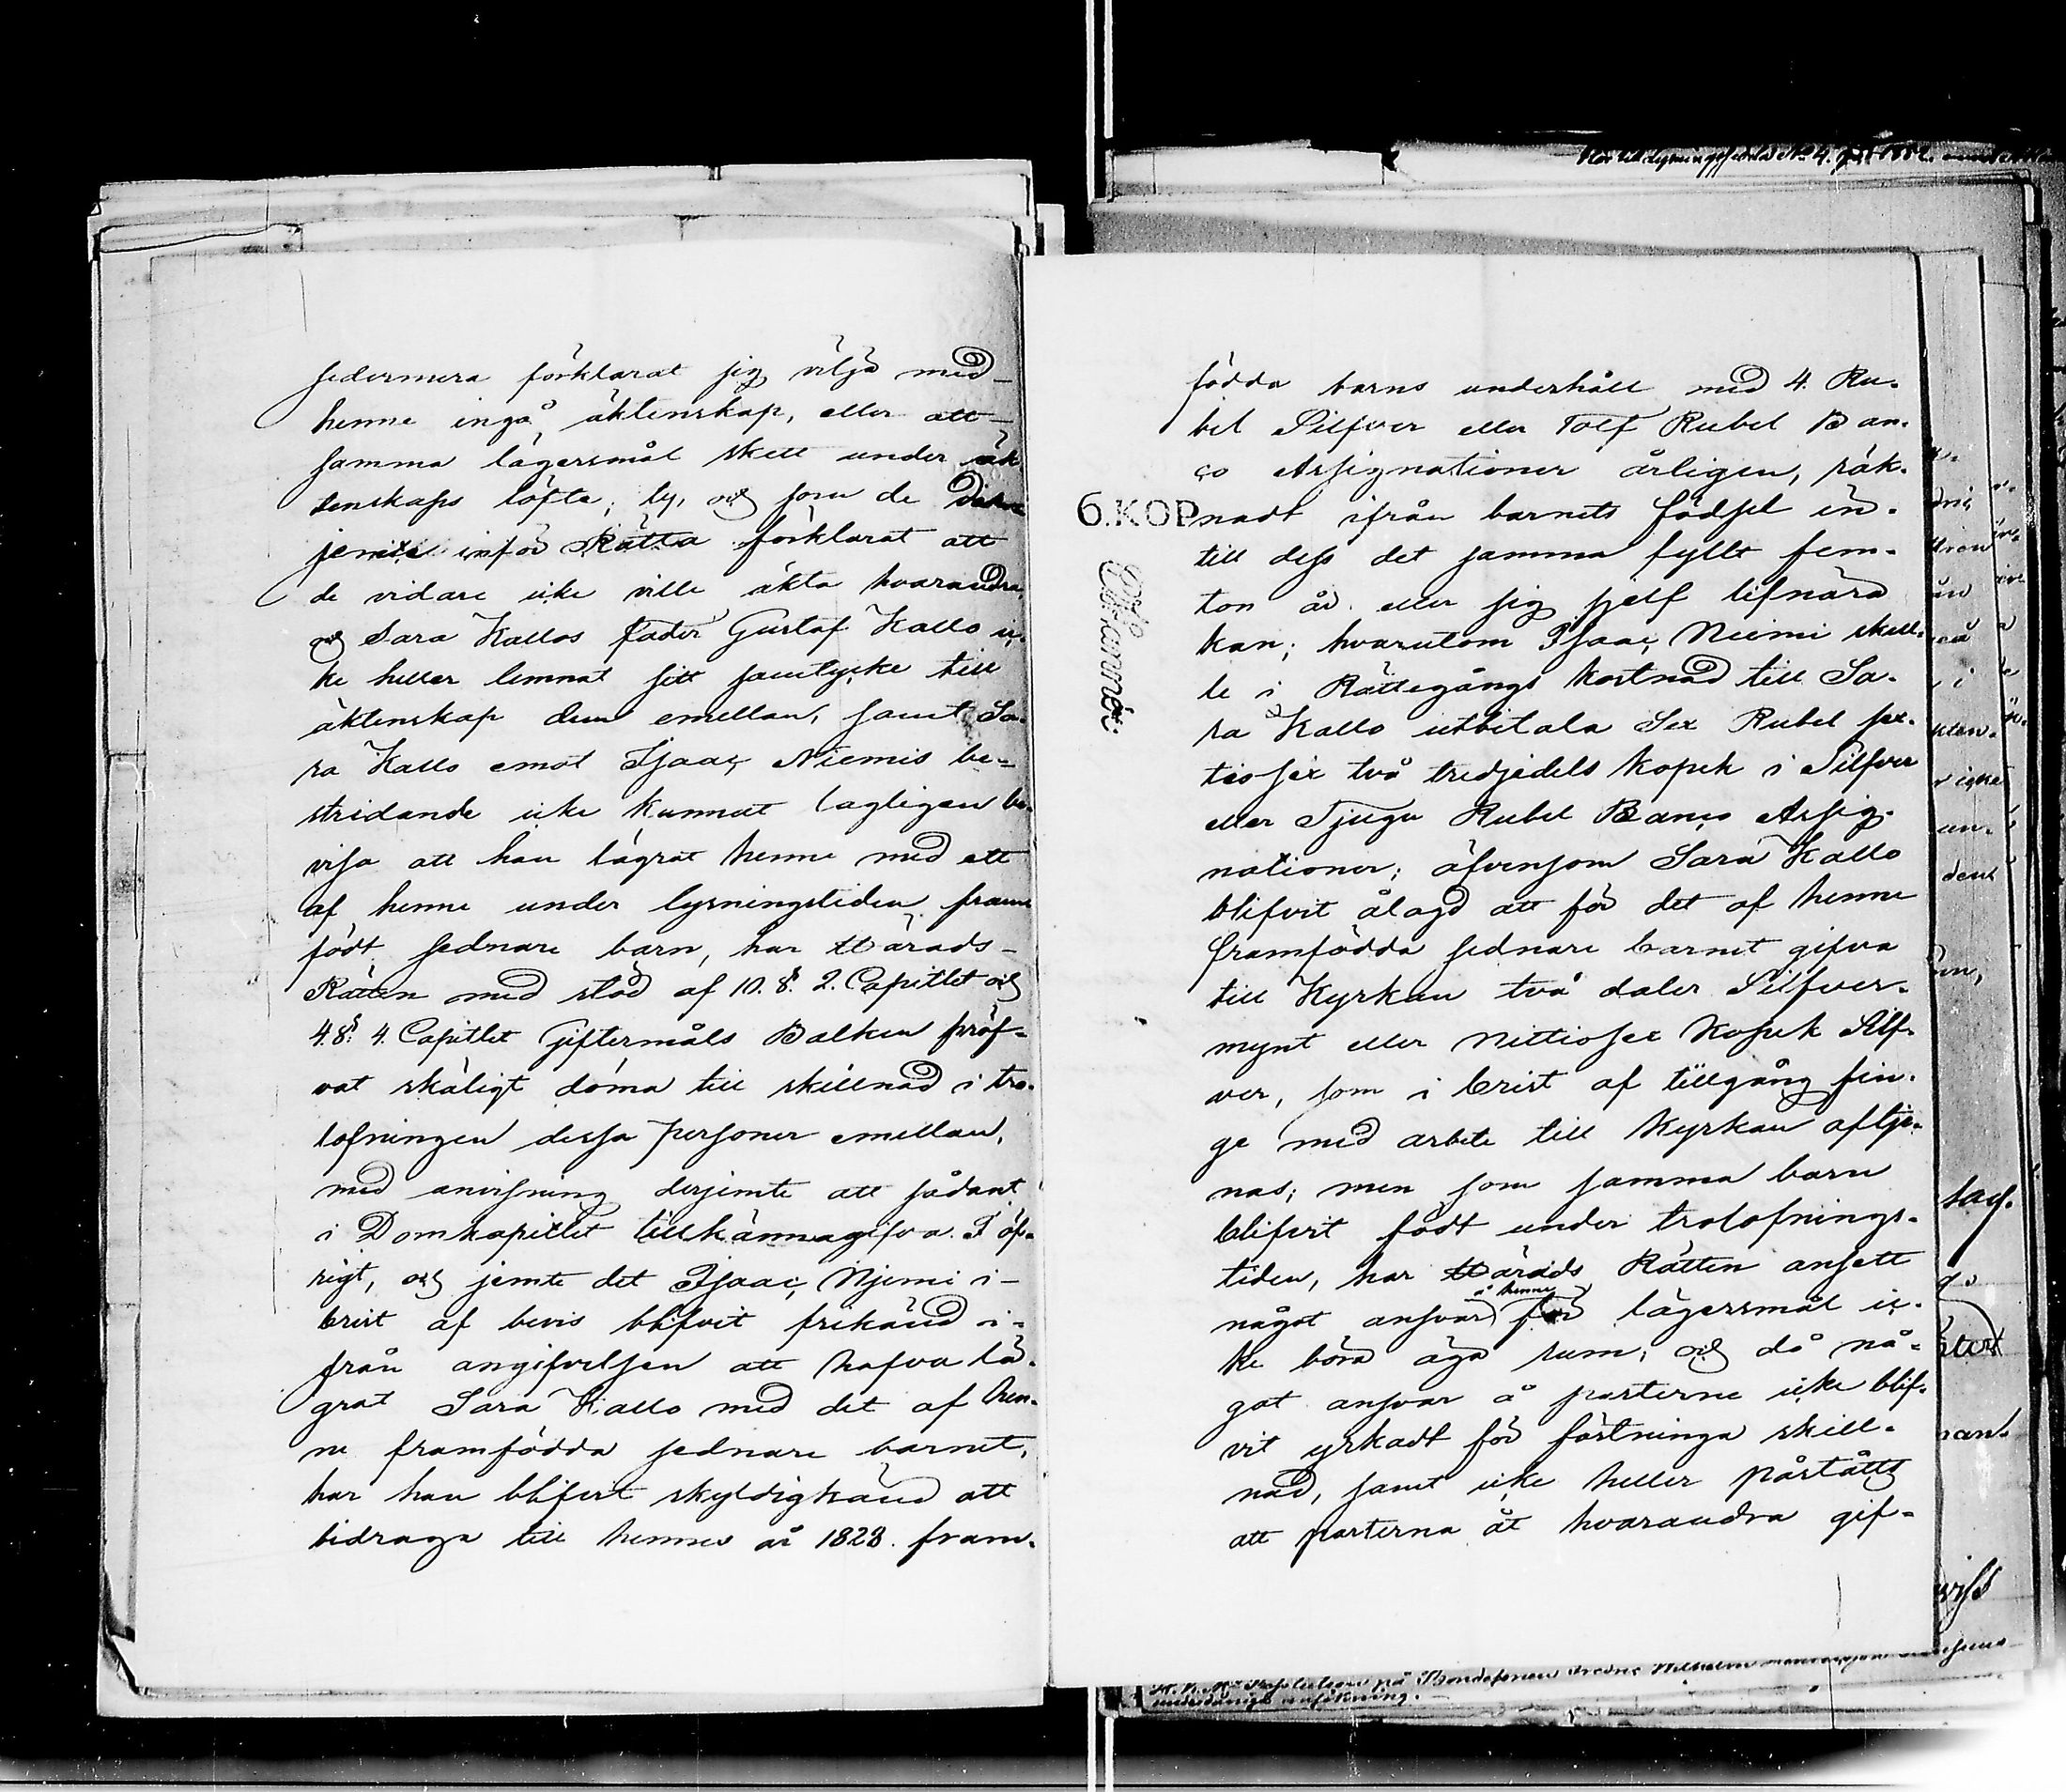 sedermera förklarat sig vilja med-
henne ingå äktenskap, eller att-
samma lägersmål skett under äk
tenskaps löfte; ty, och som de
jemte inför Rätta förklarat att
de vidare icke ville äkta hvarandra
och Sara Kallos fader Gustaf Kallo ic-
ke heller lemnat sitt samtycke till
äktenskap dem emellan, samt Sa-
ra Kallo emot Isaac Niemis be-
stridande icke kunnat lagligen be-
visa att han lägrat henne med ett
af henne under lysningstiden fram
födt sednare barn, har Härads-
Rätten med stöd af 10. §. 2. Capitlet och
4. §. 4. Capitlet Giftermåls Balken pröf-
vat skäligt döma till skillnad i tro-
lofningen dessa personer emellan,
med anvisning derjemte att sådant
i Domkapitlet tillkännagifva. I öf-
rigt, och jemte det Isaac Njemi i-
brist af bevis blifvit frikänd i-
från angifvelsen att hafva lä-
grat Sara Kallo med det af hen-
ne framfödda sednare barnet,
har han blifvit skyldigkänd att
bidraga till hennes år 1828. fram-
födda barns underhåll med 4. Ru-
bel Silfver eller Tolf Rubel Ban-
co Assignationer årligen, räk-
6.KOP
nadt ifrån barnets födsel in-
till dess det samma fyllt fem-
ton år eller sig sjelf lifnära
kan; hvarutom Isaac Niemi skul-
le i Rättegångs kostnad till Sa-
ra Kallo utbetala Sex Rubel sex-
tiosex två tredjedels kopek i Silfver
eller Tjugu Rubel Banco Assig-
nationer; äfvensom Sara Kallo
blifvit ålagd att för det af henne
framfödda sednare barnet gifva
till Kyrkan två daler Silfver-
mynt eller Nittiosex kopek Silf-
ver, som i brist af tillgång fin-
ge med arbete till Kyrkan aftje-
nas; men som samma barn
blifvit födt under trolofnings-
tiden, har Härads Rätten ansett
å henne
något ansvar för lägersmål ic-
ke böra äga rum; och då nå-
got ansvar å parterne icke blif-
vit yrkadt för fästninga skill-
nad, samt icke heller påståtts
att parterna åt hvarandra gif-